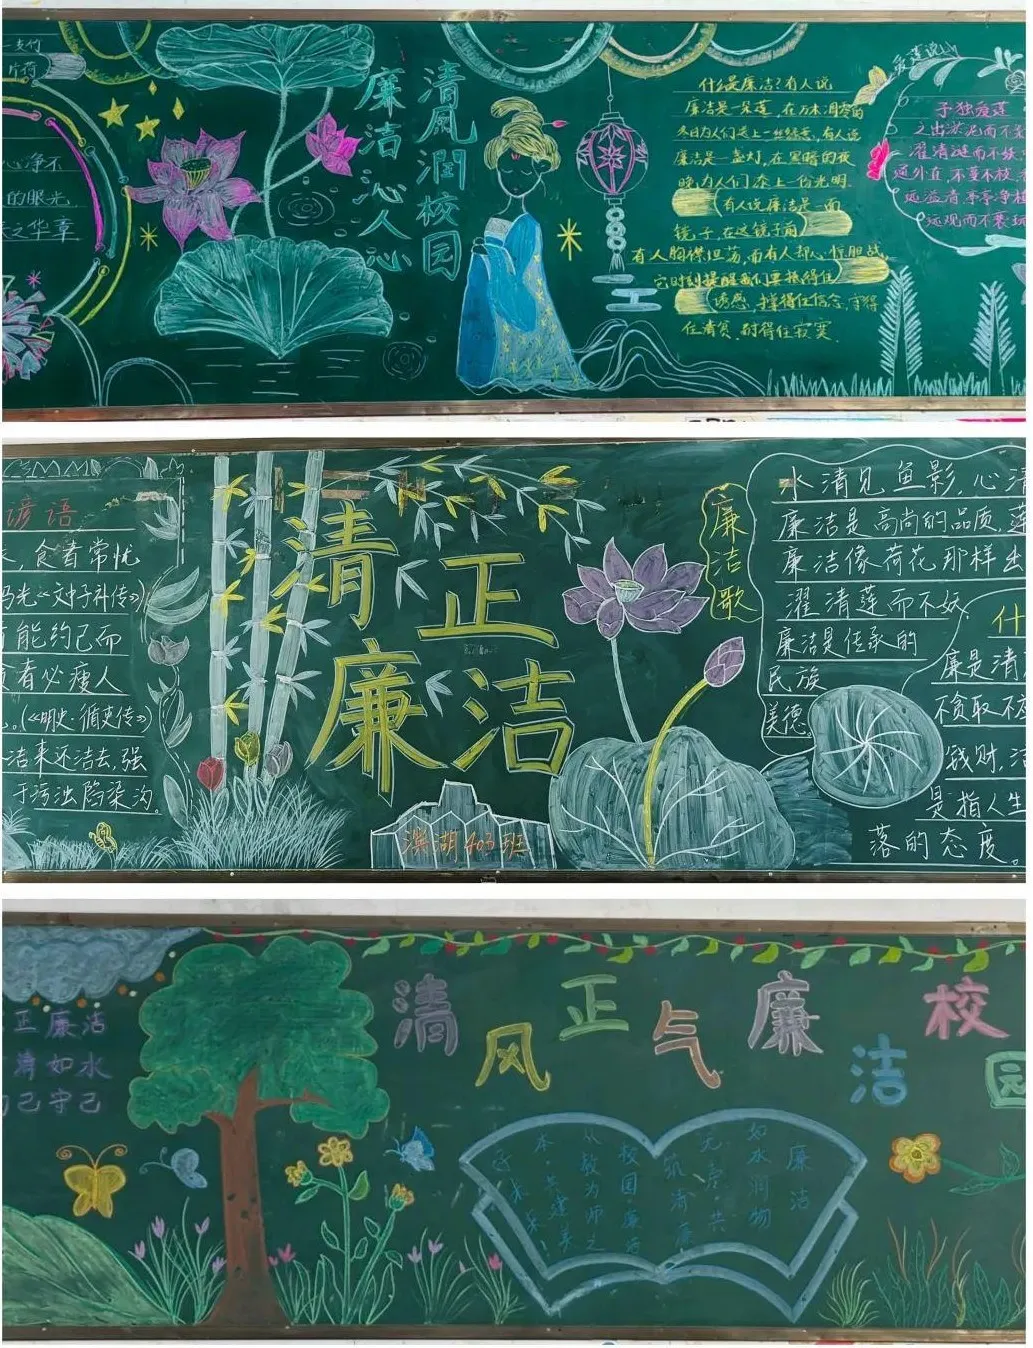 一支竹
片荷
心净不
的眼光,
之华章
廉洁沁人心
清风潤校园
什么是廉洁?有人说
廉洁是一朵莲,在万木凋零的
冬日为人们送上一丝绿意,有人说
廉洁是一盏灯,在黑暗的夜
晚,为人们添上一份光明.
有人说廉洁是一面
镜子,在这镜子前
有人胸襟坦荡,而有人却心惊胆战,
它时刻提醒我们要抵得住
诱惑,撑得住信念,守得
住清贫,耐得住寂寞.
爱莲说
予独爱莲
之出淤泥而不
濯清涟而不妖
通外直,不蔓不枝,
远溢清,亭亭净植
远观而不亵玩
谚语
,食者常忧
《文中子补传》)
能约己而
者必瘦人
。(《明史·循吏传》)
洁来还洁去,强
于污浊陷染沟。
清正
廉洁
滨湖403班
廉洁歌
水清见鱼影,心
廉洁是高尚的品质,
廉洁像荷花那样出
濯清莲而不妖
廉洁是传承的
民族
美德。
什
廉是清
不贪取不
钱财,洁
是指人生
落的态度。
正廉洁
清如水
己守己
清风正气廉洁校园
廉洁
如水润物
无尘·共
筑清廉
校园廉洁
从教为师之
本·共建美
好未来!